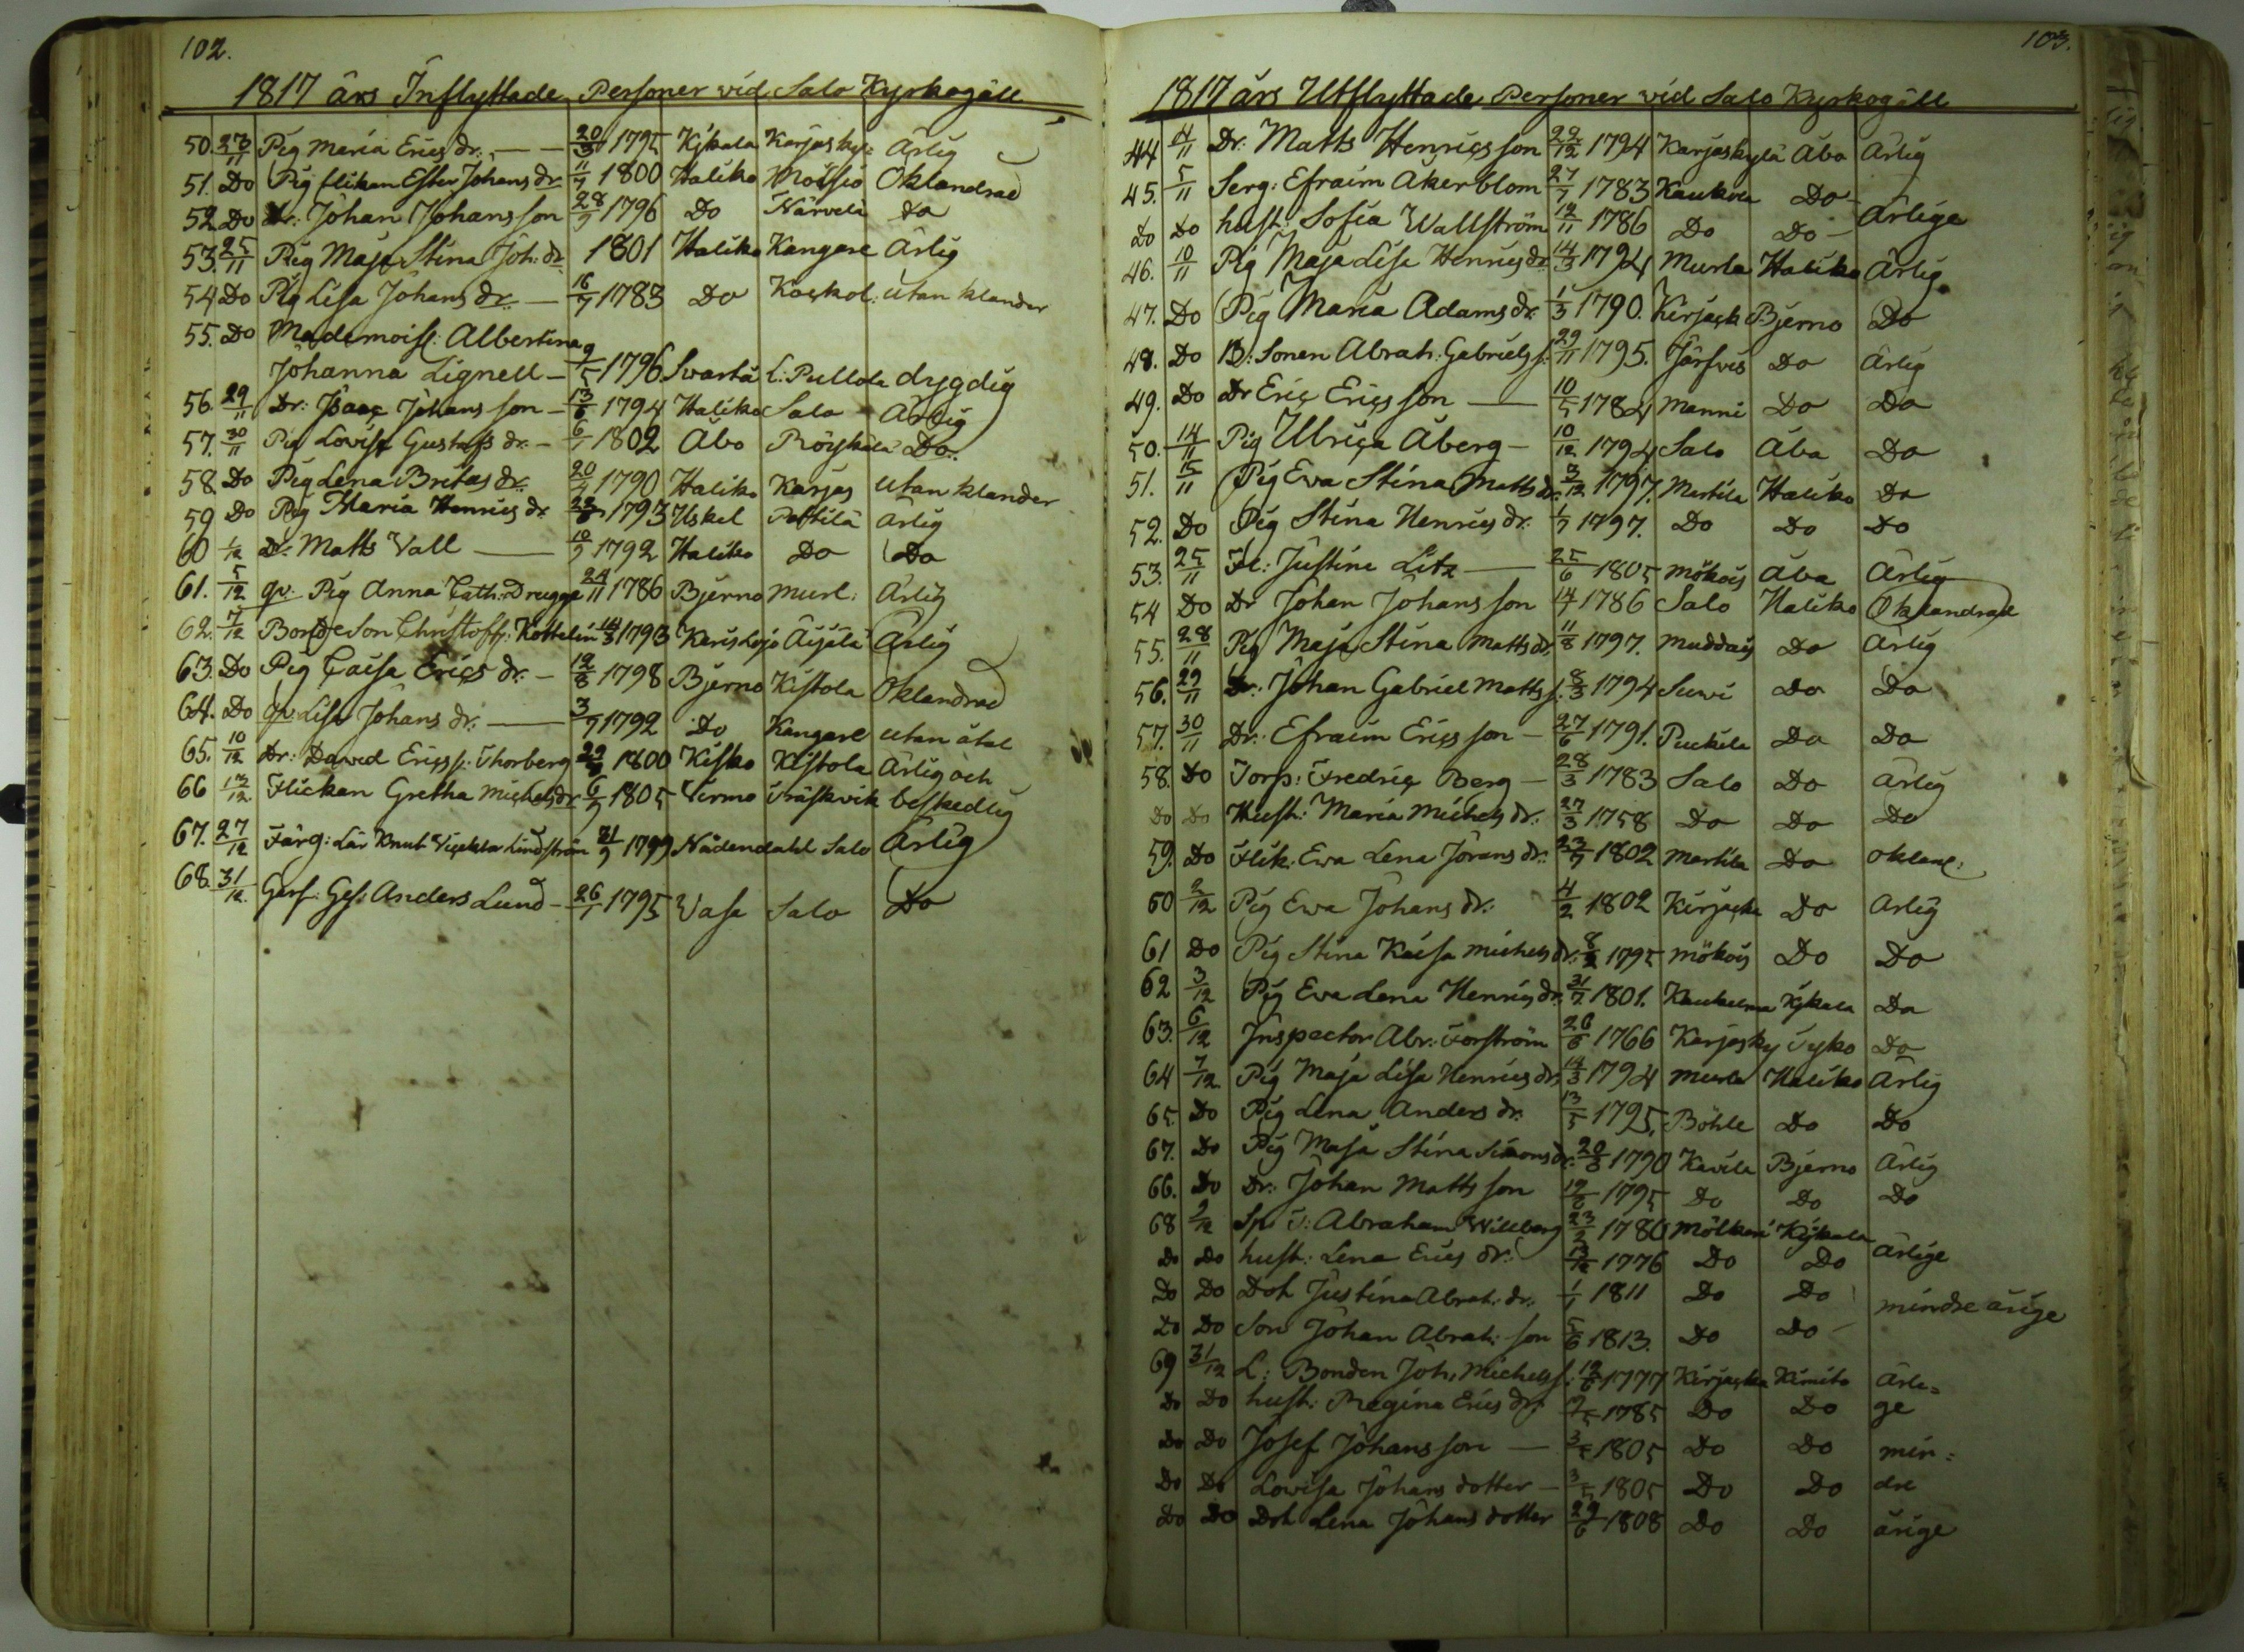 102.
1817 års Inflyttade Personer vid Salo Kyrkogäll
50. 27/11 Pig Maria Erics dr. — 20/3 1795 Kijkala Karjasky: Ärlig
51. Do Pig flikan Ester Johans dr 11/7 1800 Haliko Moisio Oklandrad
52 Do Dr: Johan Johansson 28/9 1796 Do Närvelä Do
53. 25/11 Pig Maja Stina Joh: dr 1801 Haliko Kangare Ärlig
54 Do Pig Lisa Johans dr. — 16/7 1783 Do Koskol: utan klander
55. Do Mademoisl: Albertina
Johanna Lignell — 9/5 1796 Svartå L: Pullola dygdig
56. 29/11 Dr: Isaac Johansson — 13/6 1794 Haliko Salo Ärlig
57. 30/11 Pig Lovisa Gustafs dr. — 6/1 1802 Åbo Do.
58. Do Pig Lena Britas dr. 20/7 1790 Haliko Karjas utan klander
59 Do Pig Maria Henrics dr. 1793 Uskel Pettilä ärlig
60 1/12 Dr: Matts Vall — 10/9 1792 Haliko Do Do
61. 5/12 qv: Pig Anna Cath: Drugge 24/11 1786 Bjerno Murl: Ärlig
62. 7/12 Bonde Son Christoff: Kottelin 14/3 1793 Karis Lojo Äijälä Ärlig
63. Do Pig Caisa Erics dr. — 12/8 1798 Bjerno Kistola Oklandrad
64. Do qv: Lisa Johans dr. — 3/7 1792 Do Kangare utan åtal
65. 10/12 Dr: David Ericss: Thorberg 1800 Kisko Kistola Ärlig och
66 13/12 Flickan Gretha Michels dr 6/9 1805 Virmo Träskvik beskedlig
67. 27/12 Färg: Lär Knut Lindström 21/9 1799 Nådendahl Salo Ärlig
68. 31/12. Garf: Ges: Anders Lund — 26/1 1795 Vasa Salo Do
103.
1817 års Utflyttade Personer vid Salo Kyrkogäll
44 4/11 Dr: Matts Henricsson 22/12 1794 Karjaskylä Åbo Ärlig
45. 5/11 Serg: Efraim Åkerblom 27/7 1783 Kaukola Do
Do Do hust: Sofia Wallström 12/11 1786 Do Do — ärlige
46. 10/11 Pig Maja Lisa Henrics dr. 14/3 1794 Murla Haliko Ärlig
47. Do Pig Maria Adams dr. 1/3 1790. Kirjack Bjerno Do
48. Do B: Sonen Abrah: Gabriels s. 29/11 1795. Järfvis Do Ärlig
49. Do Dr Eric Ericsson — 10/5 1784 Manni Do Do
50. 14/11 Pig Ulrica Åberg — 10/12 1794 Salo Åbo Do
51. 15/11 Pig Eva Stina Matts dr. 3/12 1797. Martila Haliko Do
52. Do Pig Stina Henrics dr. 1/7 1797. Do Do Do
53. 25/11 Fl: Justina Litz — 25/6 1805 Mökois Åbo Ärlig
54 Do Dr Johan Johansson 14/7 1786 Salo Haliko Oklandrad
55. 28/11 Pig Maja Stina Matts dr. 11/8 1797. Muddais Do Ärlig
56. 29/11 Dr: Johan Gabriel Matts s. 8/3 1794 Suvi Do Do
57. 30/11 Dr: Efraim Ericsson — 27/6 1791. Puckila Do Do
58. Do Torp: Fredric Berg — 28/3 1783 Salo Do Ärlig
Do Do Hust: Maria Michels dr. 27/3 1758 Do Do Do
59. Do Flik: Eva Lena Jörans dr. 23/7 1802 Martila Do oklanl:
60 2/12 Pig Eva Johans dr. 4/2 1802 Kirjacka Do Ärlig
61 Do Pig Stina Kaisa Michels dr. 1795 Mökois Do Do
62 3/12 Pig Eva Lena Henrics dr. 31/7 1801. Kaukelma Kijkala Do
63. 6/12 Inspector Abr: Forström 26/6 1766 Karjasky Tyko Do
64 7/12 Pig Maja Lisa Henrics dr 14/3 1794 Murla Haliko Ärlig
65. Do Pig Lena Anders dr. 13/5 1795, Böhle Do Do
67. Do Pig Maja Stina Simons dr. 20/8 1790 Kavila Bjerno Ärlig
66. Do Dr: Johan Mattsson 1795 Do Do Do
68 9/12 Abraham Willberg 23/2 1780 Kijkala
Do Do hust: Lena Erics dr. 1776 Do Do ärlige
Do Do Dot Justina Abrah: dr. 1/1 1811 Do Do
Do Do Son Johan Abrah: son 5/6 1813. Do Do mindre årige
69 31/12 L: Bonden Joh, Michels s: 12/6 1777 Kirjacka Kimito Ärli=
Do Do hust: Regina Erics dr. 1785 Do Do ge
Do Do Josef Johansson — 1805 Do Do min=
Do Do Lovisa Johans dotter — 3/5 1805 Do Do dre
Do Do Dot Lena Johans dotter 29/6 1808 Do Do årige